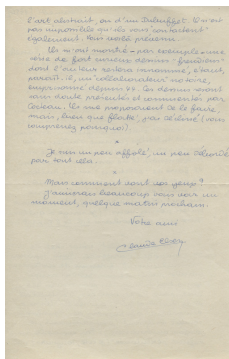 l'art abstrait, ou d'un Dubuffet. Il n'est
pas impossible qu'ils vous contactent
également. Vous voilà prévenu.
Ils m'ont montré - par exemple - une
série de fort curieux dessins "
dont l'auteur restera innommé, c'est,
paraît-il, un "collaborateur" notoire,
emprisonné depuis 45. Ces dessins seront
sans doute présentés et commentés par
Cocteau. Ils me proposaient de le faire
mais, bien que flatté, j'ai décliné (vous
comprenez pourquoi)
*
Je suis un peu affolé, un peu
par tout cela.
*
Mais comment sont vos yeux?
J'aimerais beaucoup vous voir un
moment, quelque matin prochain.
Votre ami